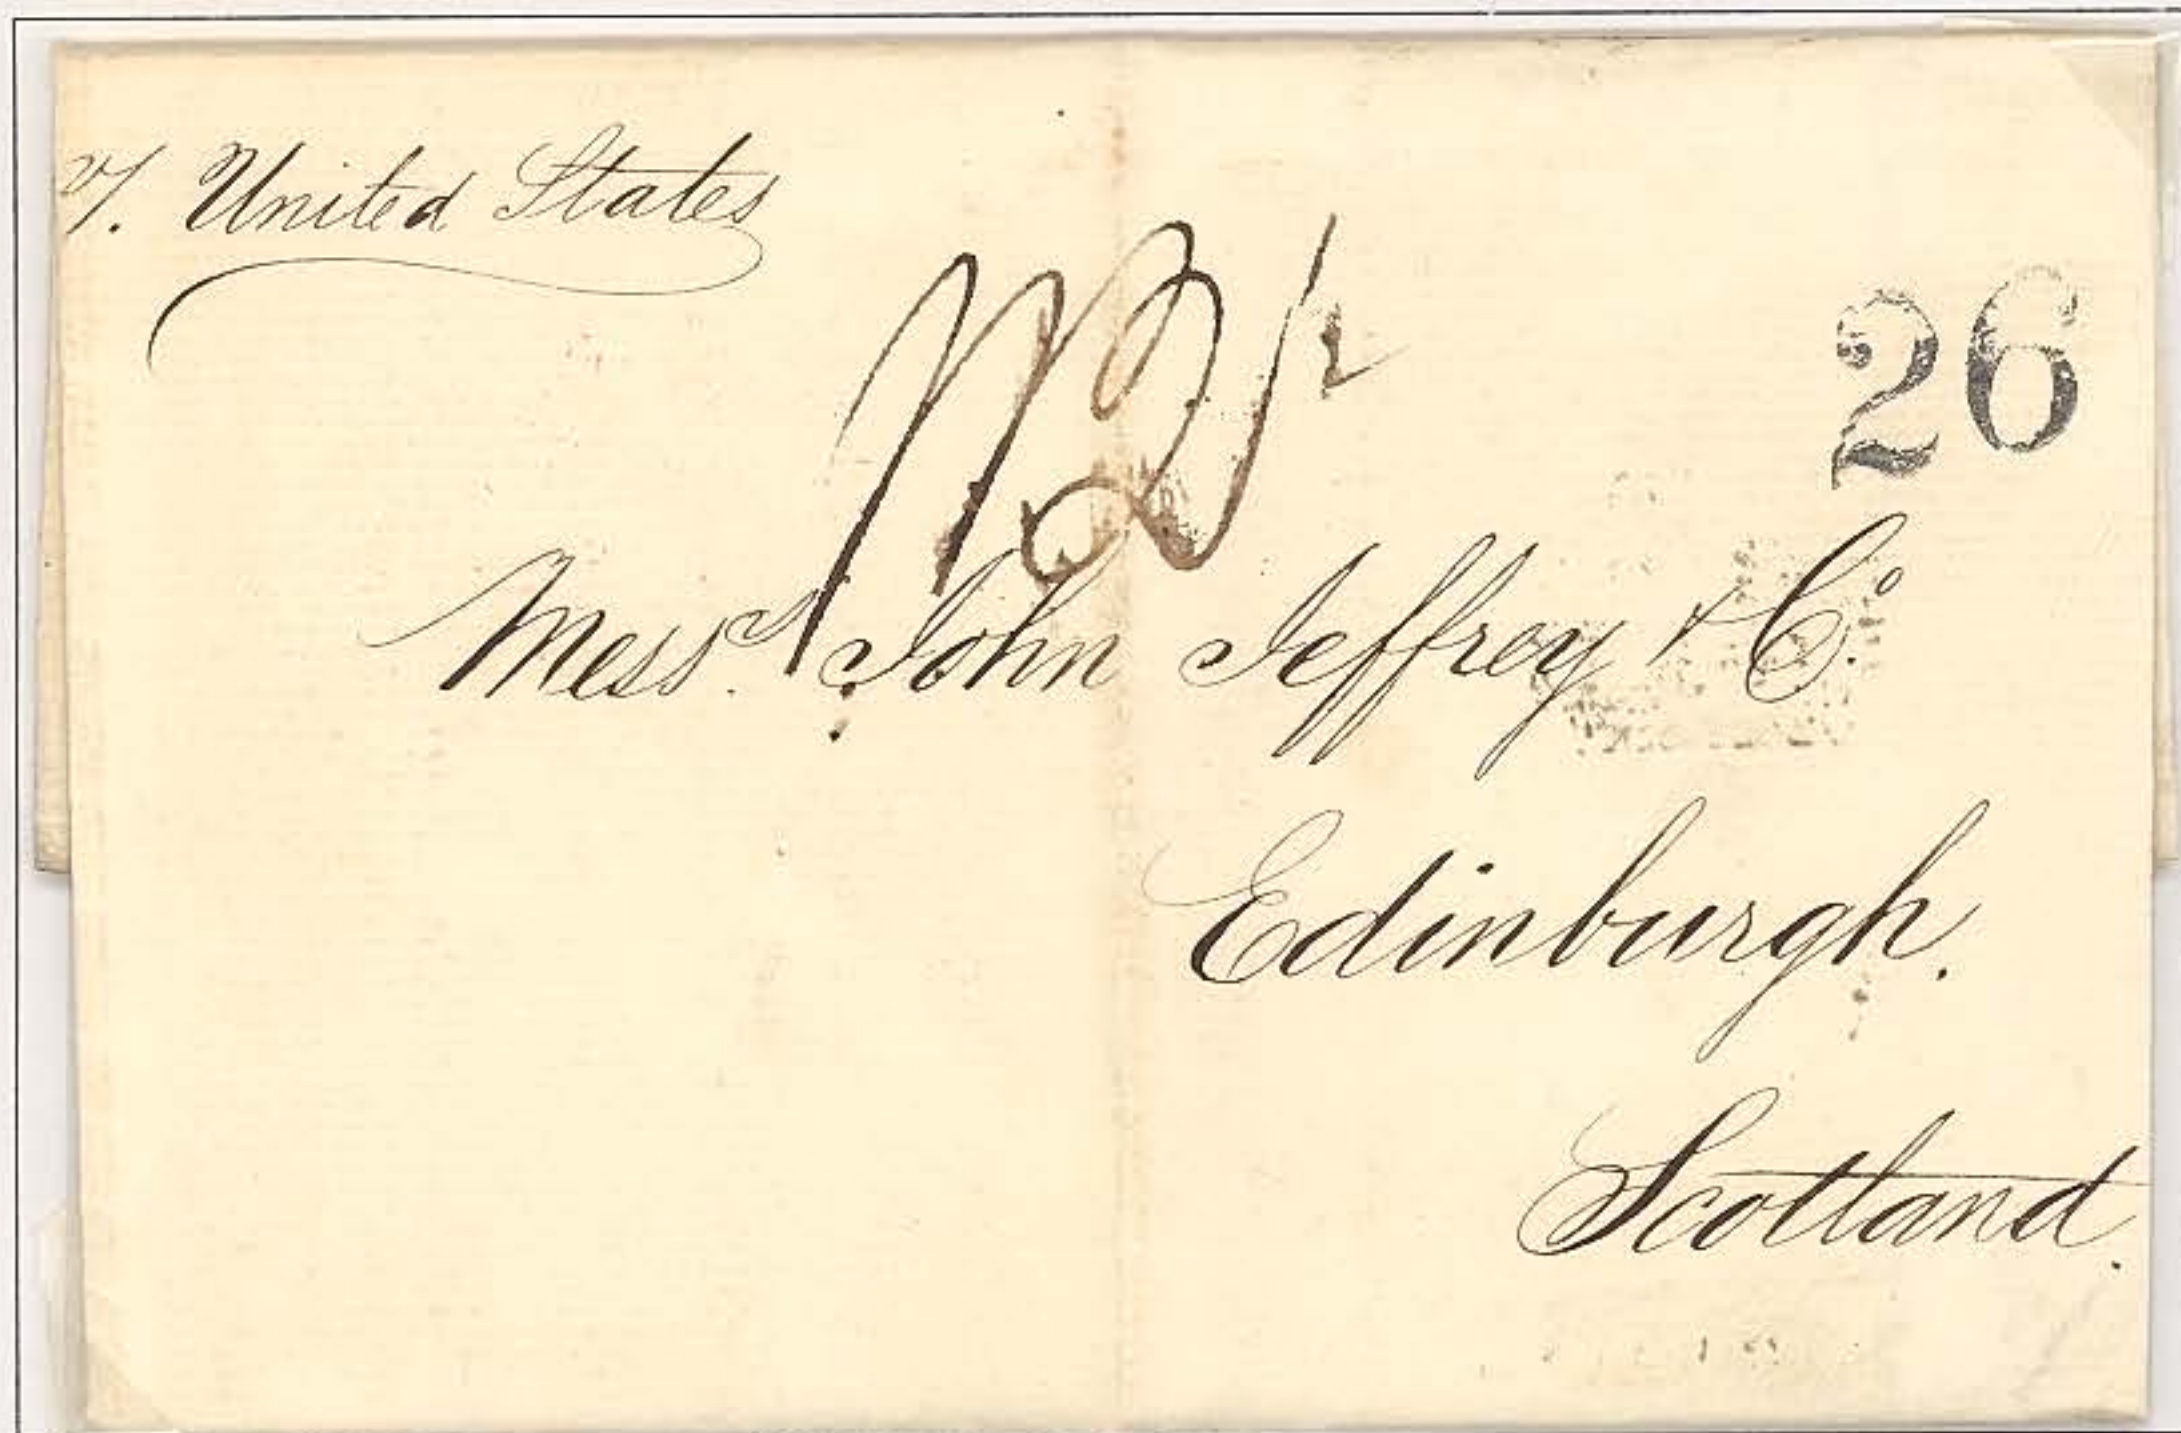 v/. United States
1/2½
26
Messrs. John Jeffrey & Co.
Edinburgh.
Scotland.